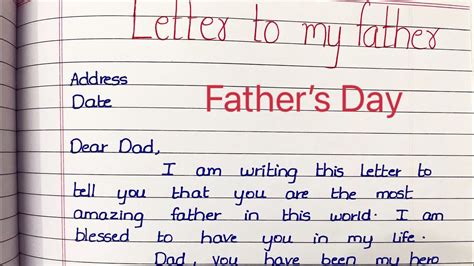 Letter to my father
Address
Father's Day
Date
Dear Dad,
I am writing this letter to
tell you that you are the most
amazing father in this world. I am
blessed to have you in my life.
Dad, you have been my hero